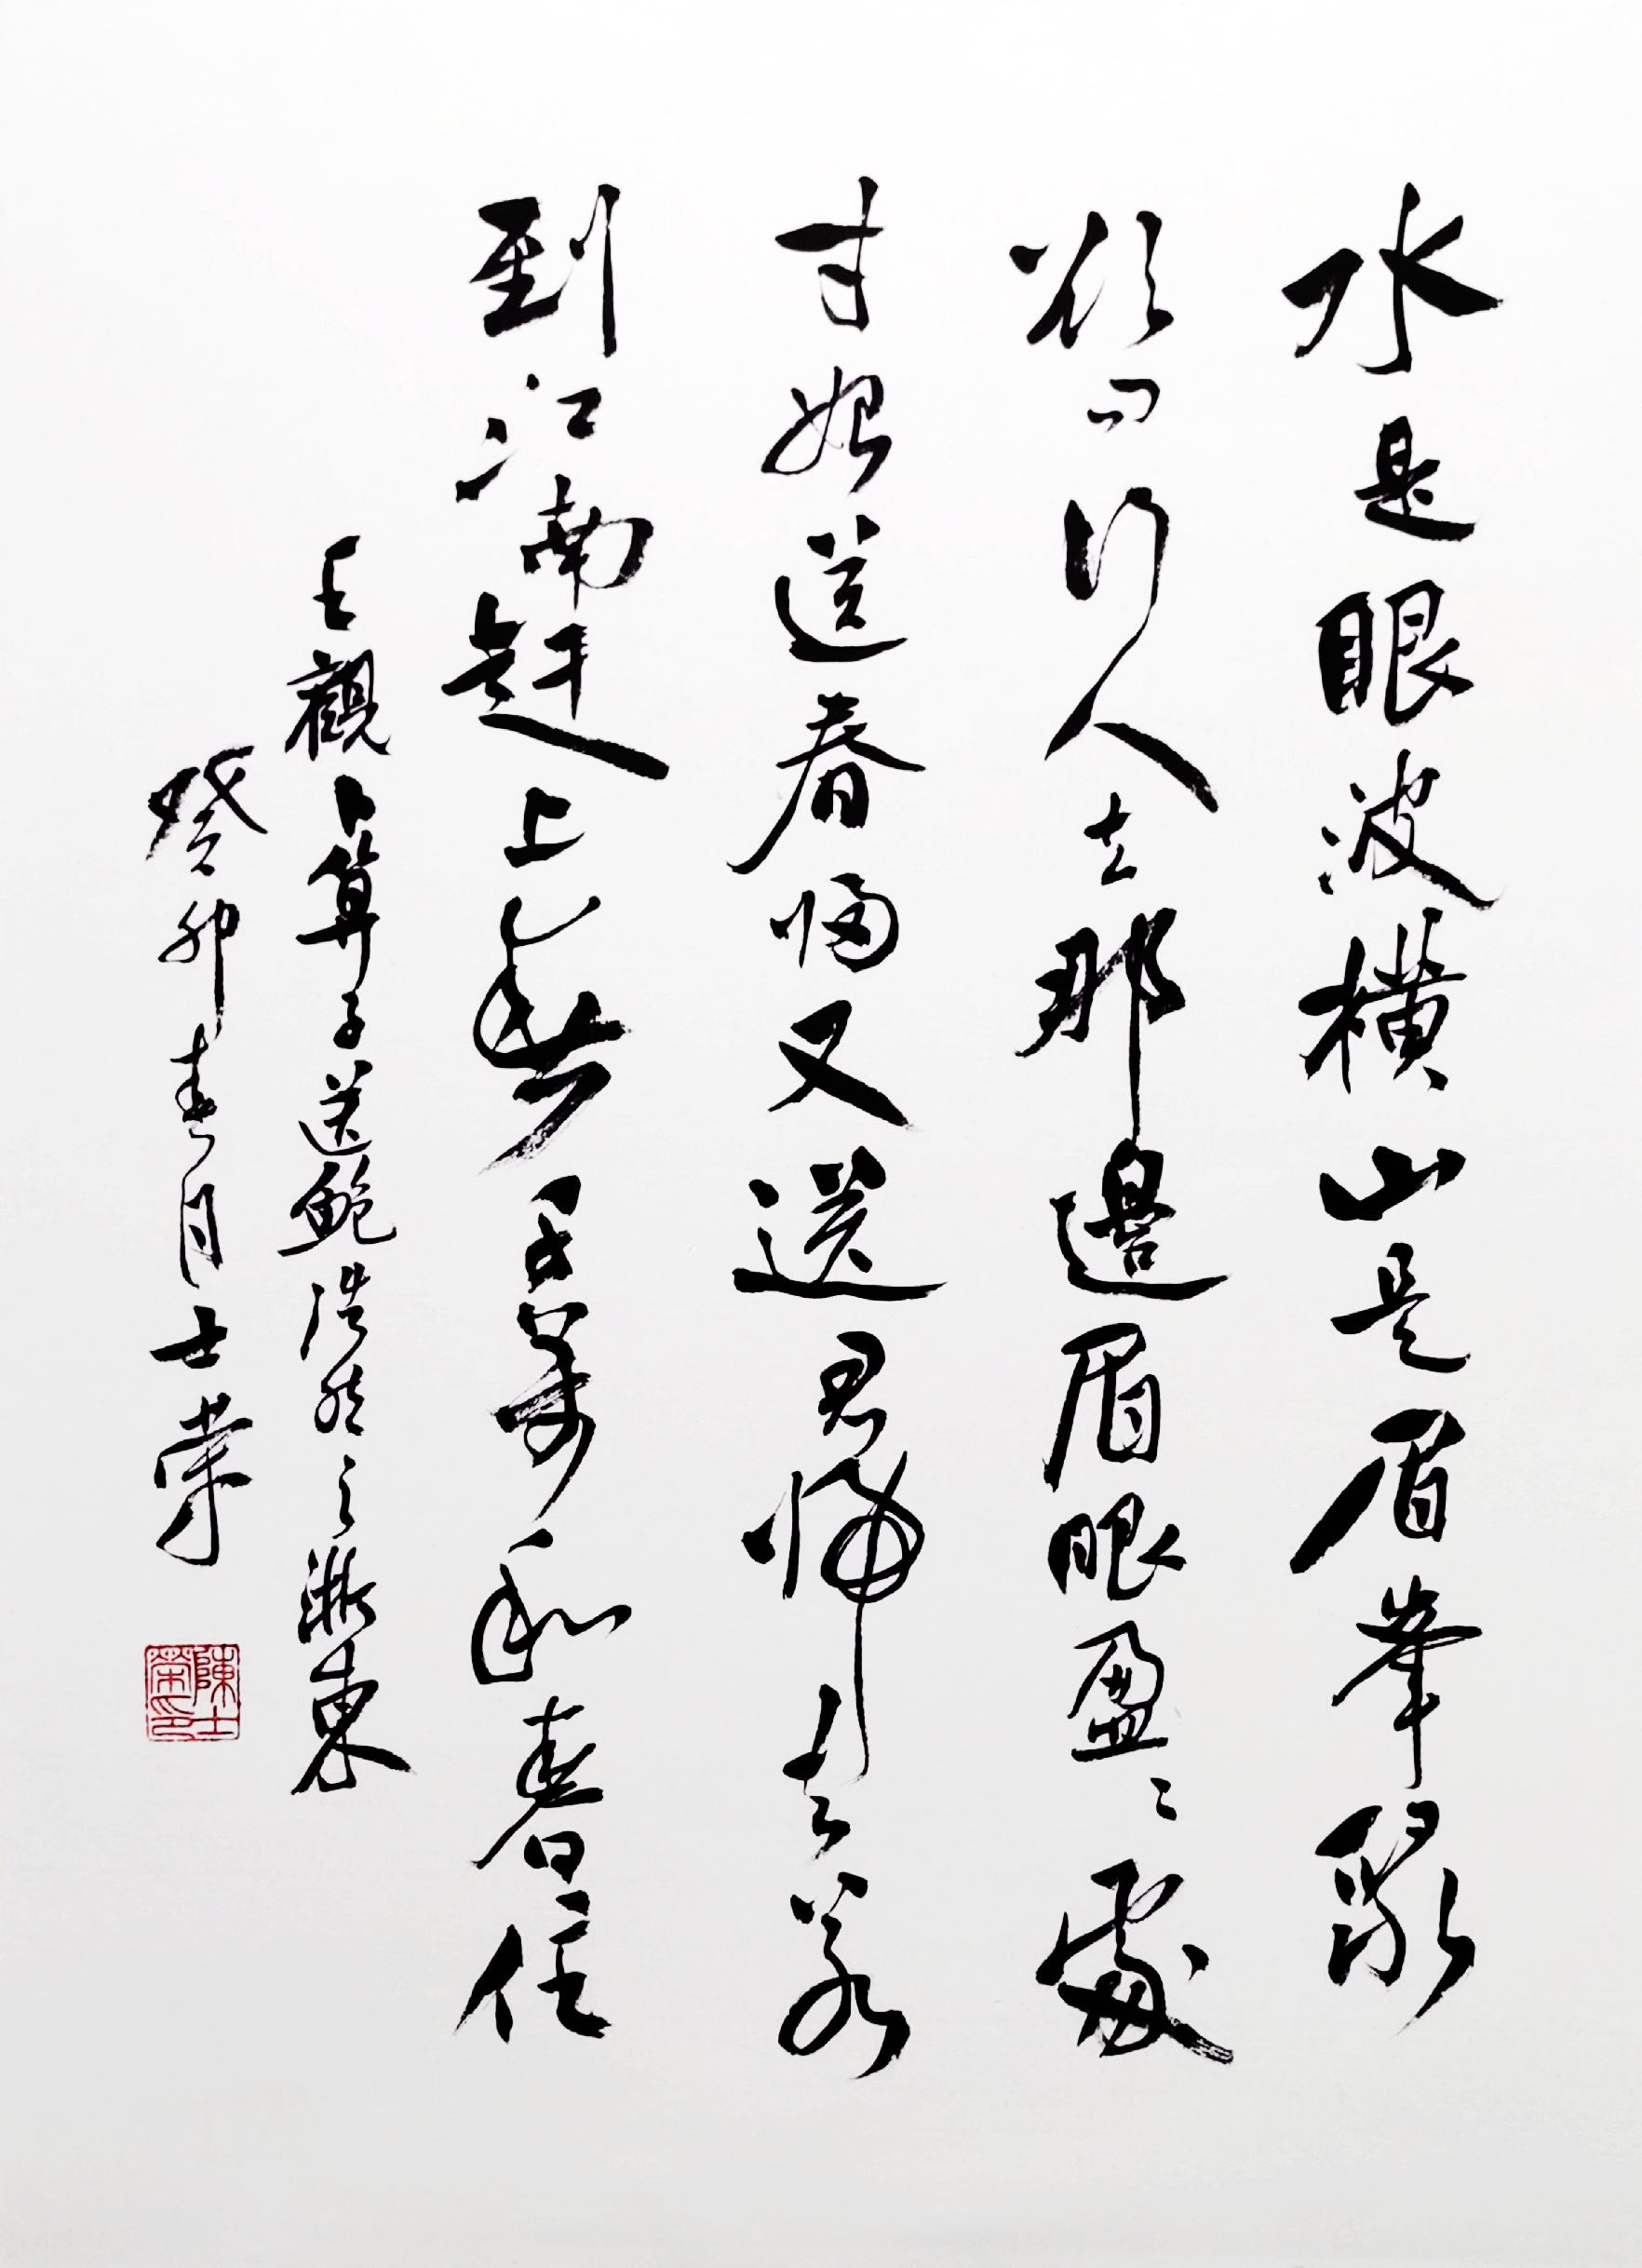 水是眼波橫山是眉峯聚
欲問行人去那邊眉眼盈〻處
才始送春歸又送君歸去若
到江南趕上春千萬和春住
王觀卜算子送鮑浩然之浙東
癸卯春月士榮
陳士榮印